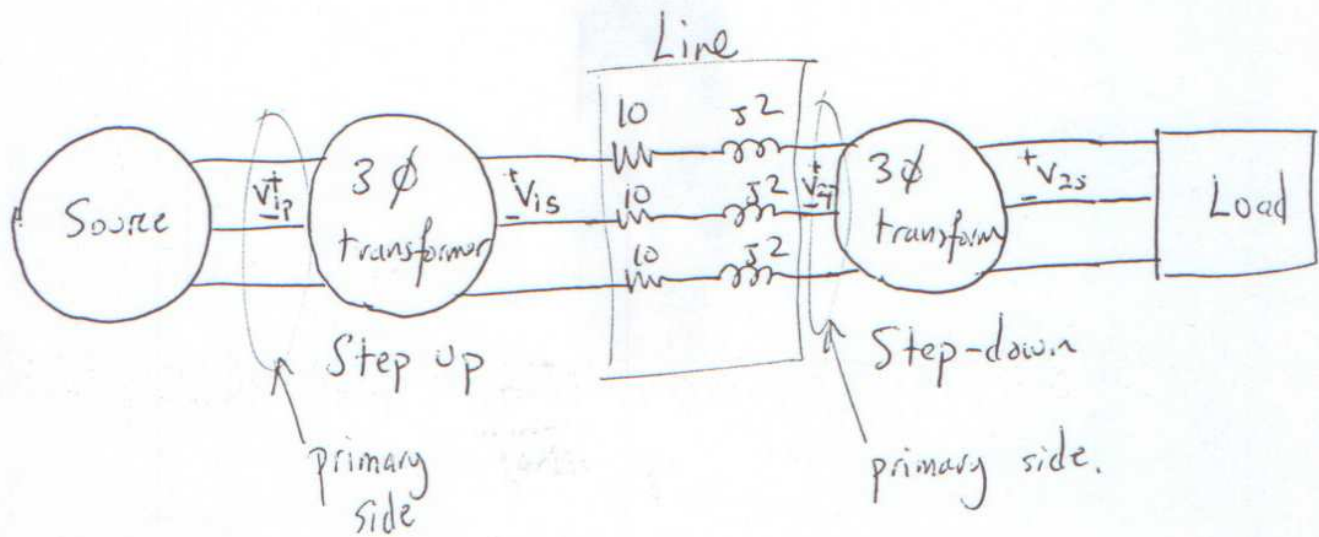 Line
10 J2
Source
+
V1p
-
3 φ
transformer
+
V1s
-
10 J2
10 J2
+
-
3φ
transform
+
V2s
-
Load
Step up
Step-down
primary
side
primary side.